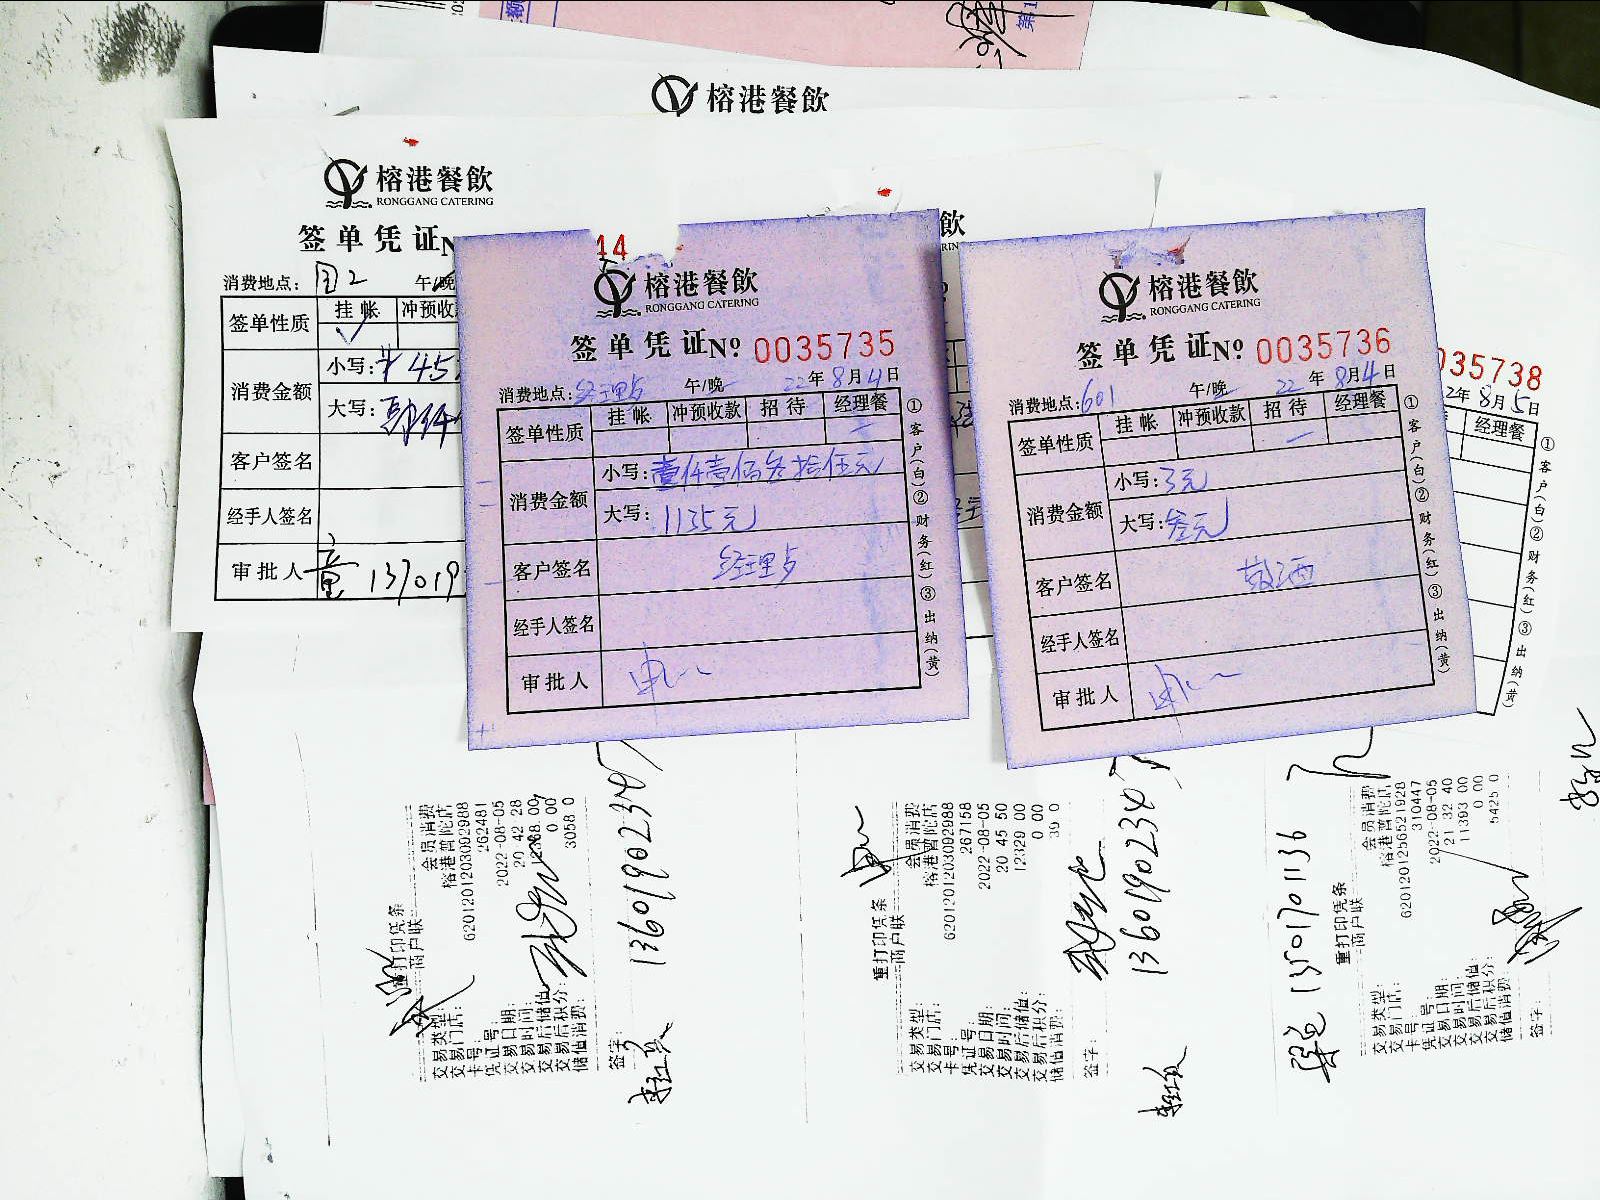 榕港餐飲
榕港餐飲
RONGGANG CATERING
签单凭证
消费地点：
午/晚
签单性质
挂帐
冲预收
消费金额
小写：¥45
大写：
客户签名
经手人签名
审批人
137019
44
榕港餐飲
RONGGANG CATERING
签单凭证№ 0035735
消费地点：经理点 午/晚 22年8月4日
签单性质 挂帐 冲预收款 招待 经理餐
消费金额
小写：壹仟壹佰叁拾伍元
大写：1135元
客户签名 经理点
经手人签名
审批人
①客户(白)②财务(红)③出纳(黄)
榕港餐飲
RONGGANG CATERING
签单凭证№ 0035736
消费地点：601 午/晚 22年8月4日
签单性质 挂帐 冲预收款 招待 经理餐
消费金额
小写：3元
大写：叁元
客户签名 敬酒
经手人签名
审批人
①客户(白)②财务(红)③出纳(黄)
飲
035738
2年8月5日
经理餐
①客户(白)②财务(红)③出纳(黄)
重打印凭条
商户联
交易类型： 会员消费
交易门店： 榕港普陀店
卡号： 6201201203092988
凭证号： 262481
交易日期： 2022-08-05
交易时间： 20 42 28
交易后储值：
交易后积分： 0 00
储值消费： 3058 0
签字：
13601902345
重打印凭条
商户联
交易类型： 会员消费
交易门店： 榕港普陀店
卡号： 6201201203092988
凭证号： 267158
交易日期： 2022-08-05
交易时间： 20 45 50
交易后储值： 12329 00
交易后积分： 0 00
储值消费： 39 0
签字：
13601902345
重打印凭条
商户联
交易类型： 会员消费
交易门店： 榕港普陀店
卡号： 6201201256521928
凭证号： 310447
交易日期： 2022-08-05
交易时间： 21 32 40
交易后储值： 11393 00
交易后积分： 0 00
储值消费： 5425 0
签字：
13501701136